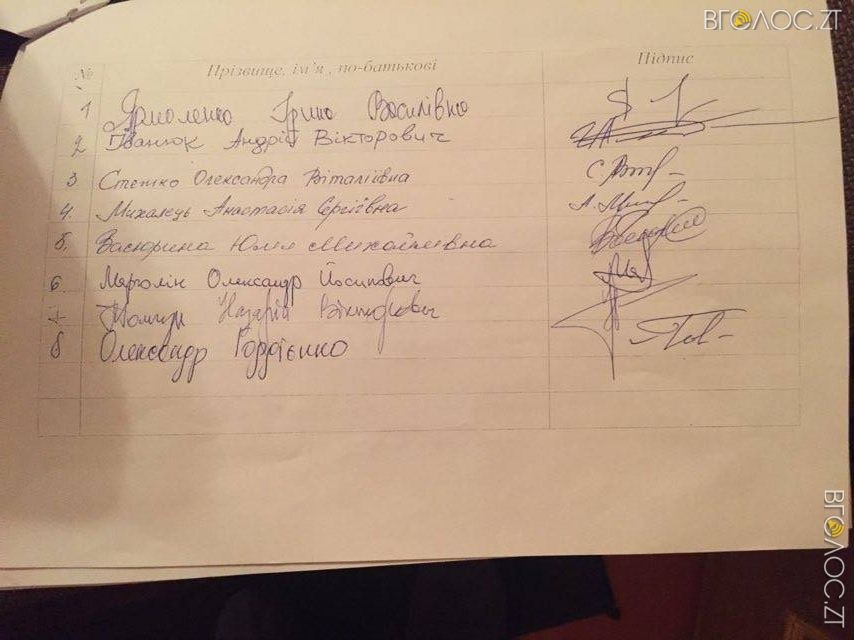 ВГОЛОС.ZT
№ Прізвище, ім'я, по-батькові Підпис
1 Ярмоленко Ірина Василівна
2 Іванюк Андрій Вікторович
3 Стешко Олександра Віталіївна С.
4. Михалець Анастасія Сергіївна А.
5. Васюрина Юлія Михайлівна
6. Марголін Олександр Йосипович
7 Назарій Вікторович
8 Олександр Гордієнко
ВГОЛОС.ZT